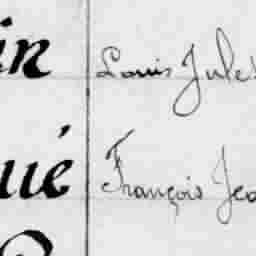 in Louis Jules
ué François Jea